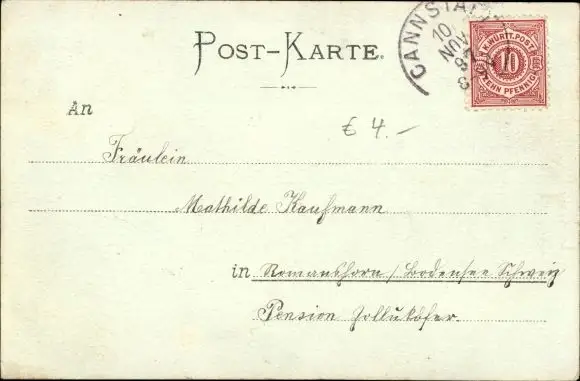 POST-KARTE.
CANNSTATT
10 NOV
K. WÜRTT. POST
10
ZEHN PFENNIG
An
€ 4.-
Fräulein
Mathilde Kaufmann
in Romanshorn / Bodensee Schweiz
Pension